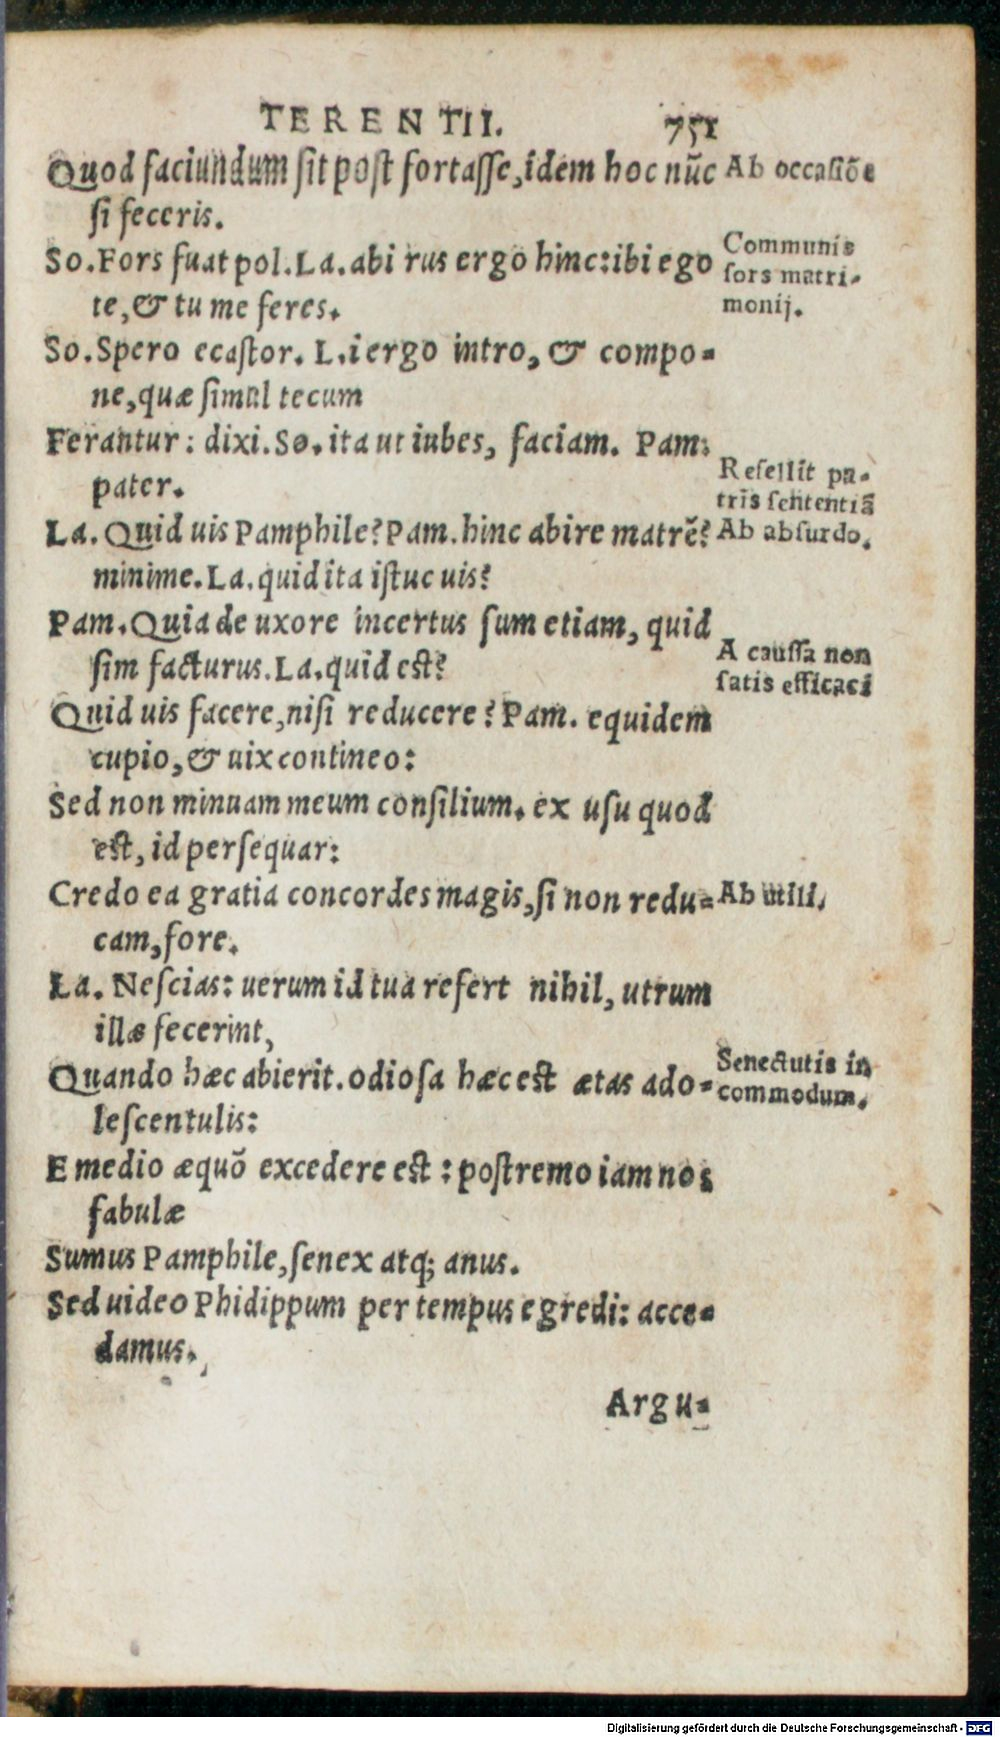 TERENTII. 751
Quod faciundum sit post fortasse, idem hoc nūc
si feceris.
Ab occasiōe
So. Fors fuat pol. La. abi rus ergo hinc: ibi ego
te, & tu me feres.
Communis
sors matri-
monij.
So. Spero ecastor. L. i ergo intro, & compo-
ne, quæ simul tecum
Ferantur: dixi. So. ita ut iubes, faciam. Pam.
pater.
Refellit pa-
tris sententiā
La. Quid uis Pamphile? Pam. hinc abire matrē?
minime. La. quid ita istuc uis?
Ab absurdo.
Pam. Quia de uxore incertus sum etiam, quid
sim facturus. La. quid est?
A caussa non
satis efficaci
Quid uis facere, nisi reducere? Pam. equidem
cupio, & uix contineo:
Sed non minuam meum consilium. ex usu quod
est, id persequar:
Credo ea gratia concordes magis, si non redu-
cam, fore.
Ab utili.
La. Nescias: uerum id tua refert nihil, utrum
illæ fecerint,
Quando hæc abierit. odiosa hæc est ætas ado-
lescentulis:
Senectutis in
commodum.
E medio æquō excedere est: postremo iam nos
fabulæ
Sumus Pamphile, senex atq; anus.
Sed uideo Phidippum per tempus egredi: acce-
damus.
Argu-
Digitalisierung gefördert durch die Deutsche Forschungsgemeinschaft - DFG